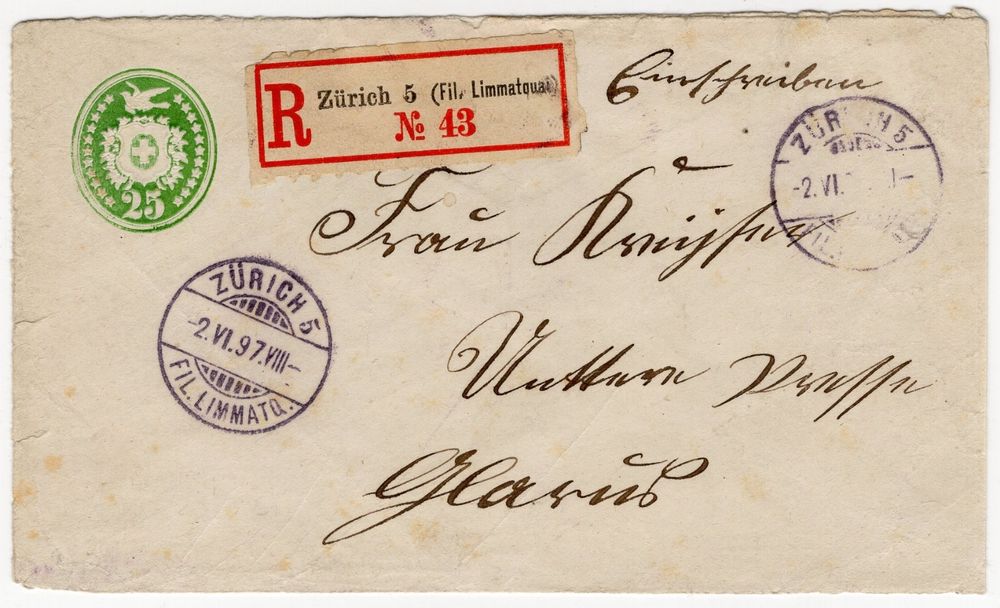 25
R Zürich 5 (Fil. Limmatquai)
№ 43
Einschreiben
ZÜRICH 5
-2.VI.
Frau
ZÜRICH 5
-2.VI.97.VIII-
FIL. LIMMATQ.
Untere Presse
Glarus